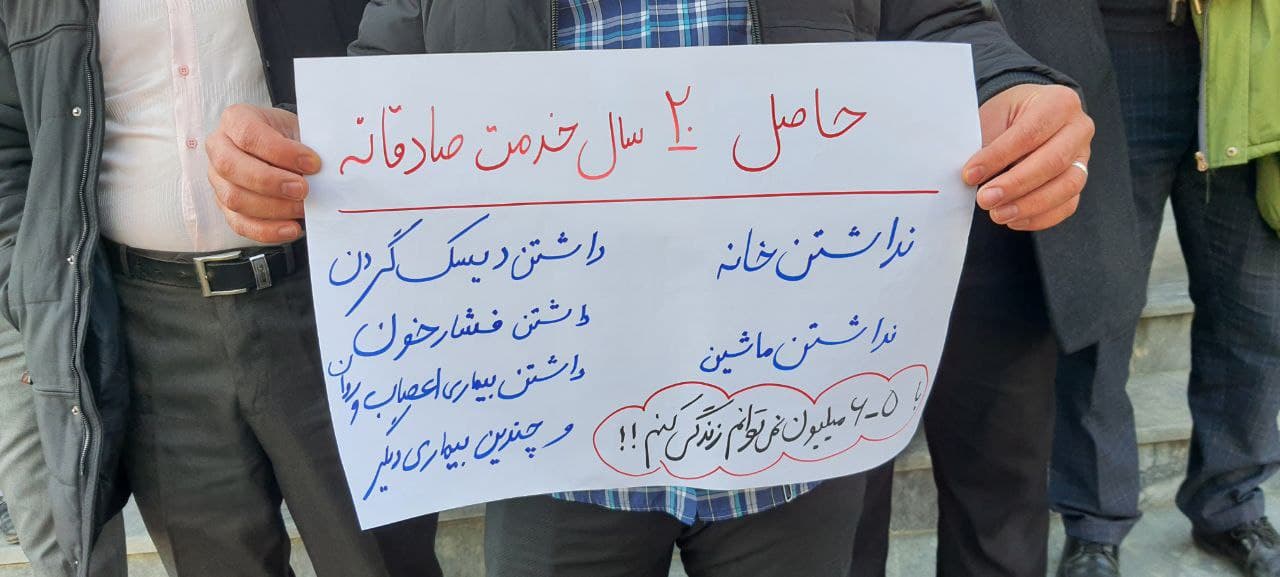 حاصل ۲۰ سال خدمت صادقانه
نداشتن خانه
نداشتن ماشین
با ۵-۶ میلیون نمی‌توانم زندگی کنم!!
داشتن دیسک گردن
داشتن فشار خون
داشتن بیماری اعصاب و روان
و چندین بیماری دیگر